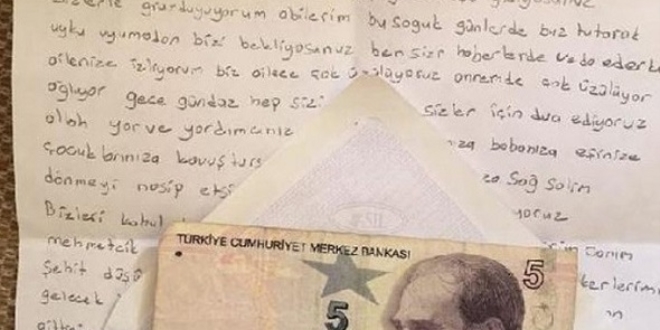 sizlerle gururduyuyorum abilerim bu soguk günlerde buz tutarak
uyku uyumadan bizi bekliyosunuz ben sizi haberlerde veda ederken
ailenize izliyorum biz ailece çok üzülüyoruz annemde çok üzülüyor
ağlıyor gece gündüz hep sizi sizler için dua ediyoruz
allah yar ve yardımcınız babanıza eşinize
çocuklarınıza kavuştur Sağ Salim
dönmeyi nasip etsi
Bizleri
mehmetcik canım
Şehit düşü
gelecek
TÜRKİYE CUMHURİYET MERKEZ BANKASI
5
5